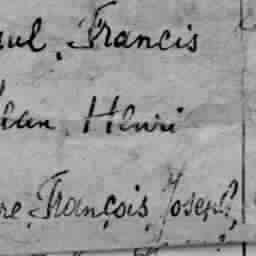 aul, Francis
Jean, Henri
re, François, Joseph,